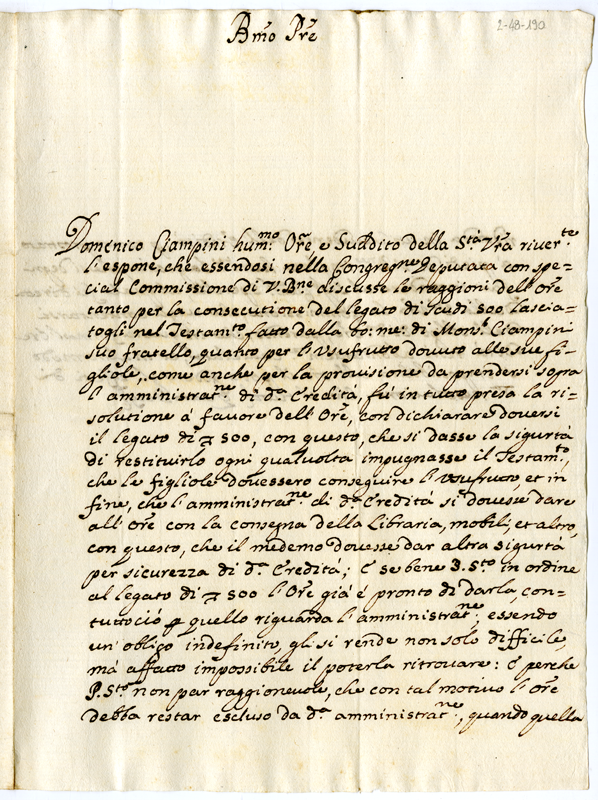 Bmo Pre
2-48-190
Domenico Ciampini hum.mo Ore e Suddito della Stà Vrã river.te
l'espone, che essendosi nella Congregne Deputata con spe=
cial Commissione di V. Bne discusse le raggioni dell'ore
tanto per la consecutione del legato di scudi 500 lascia=
togli nel Testam.to fatto dalla bo: me: di Mons.r Ciampini
suo fratello, quanto per l'Usufrutto dovuto alle sue fi=
gliole, come anche per la provisione da prendersi sopra
l'amministrat.ne di d.a Eredità, fù in tutto presa la ri=
solutione à favore dell'Ore, con dichiarare doversi
il legato di 500, con questo, che si dasse la sigurtà
di restituirlo ogni qualvolta impugnasse il Testam.to,
che le figliole dovessero conseguire l'Usufruo, et in
fine, che l'amministrat.ne di d.a Eredità si dovesse dare
all'Ore con la consegna della Libraria, mobili, et altro,
con questo, che il medemo dovesse dar altra sigurtà
per sicurezza di d.a Eredità; E se bene B. Sto in ordine
al legato di 500 l'Ore già è pronto di darla, con=
tuttociò p quello riguarda l'amministrat.ne, essendo
un'obligo indefinito, gli si rende non solo difficile,
mà affatto impossibile il poterla ritrovare: E perche
P. Sto non par raggionevole, che con tal motivo l'ore
debba restar escluso da d.a amministrat.ne, quando quella